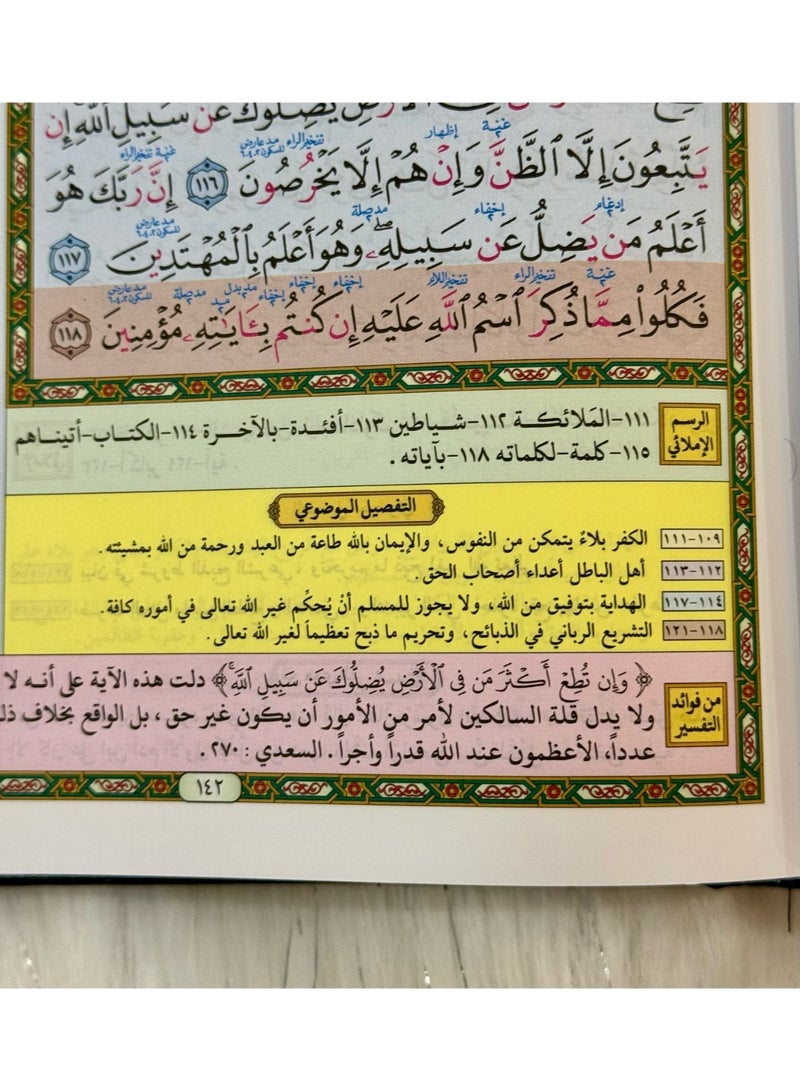 يُضِلُّوكَ عَن سَبِيلِ ٱللَّهِ إِن
غنة إظهار تفخيم الراء مد عارض للسكون ٢،٤،٦ غنة تفخيم الراء
يَتَّبِعُونَ إِلَّا ٱلظَّنَّ وَإِنْ هُمْ إِلَّا يَخْرُصُونَ ١١٦ إِنَّ رَبَّكَ هُوَ
إدغام إخفاء مد صلة مد عارض للسكون ٢،٤،٦
أَعْلَمُ مَن يَضِلُّ عَن سَبِيلِهِۦ ۖ وَهُوَ أَعْلَمُ بِٱلْمُهْتَدِينَ ١١٧
غنة تفخيم الراء تفخيم اللام إخفاء إخفاء إخفاء مد بدل مد مد صلة مد عارض للسكون ٢،٤،٦
فَكُلُوا۟ مِمَّا ذُكِرَ ٱسْمُ ٱللَّهِ عَلَيْهِ إِن كُنتُم بِـَٔايَـٰتِهِۦ مُؤْمِنِينَ ١١٨
الرسم الإملائي
١١١-المَلائكة ١١٢-شياطين ١١٣-أفئدة-بالآخرة ١١٤-الكتاب-أتيناهم
١١٥-كلمة-لكلماته ١١٨-بآياته .
التفصيل الموضوعي
١٠٩-١١١ الكفر بلاءٌ يتمكن من النفوس، والإيمان بالله طاعة من العبد ورحمة من الله بمشيئته.
١١٢-١١٣ أهل الباطل أعداء أصحاب الحق.
١١٤-١١٧ الهداية بتوفيق من الله، ولا يجوز للمسلم أنْ يُحكِّم غير الله تعالى في أموره كافة.
١١٨-١٢١ التشريع الرباني في الذبائح، وتحريم ما ذبح تعظيماً لغير الله تعالى.
من فوائد التفسير
﴿ وَإِن تُطِعْ أَكْثَرَ مَن فِى ٱلْأَرْضِ يُضِلُّوكَ عَن سَبِيلِ ٱللَّهِ ۚ ﴾ دلت هذه الآية على أنه لا
ولا يدل قلة السالكين لأمر من الأمور أن يكون غير حق ، بل الواقع بخلاف ذل
عدداً، الأعظمون عند الله قدراً وأجراً . السعدي : ٢٧٠ .
١٤٢